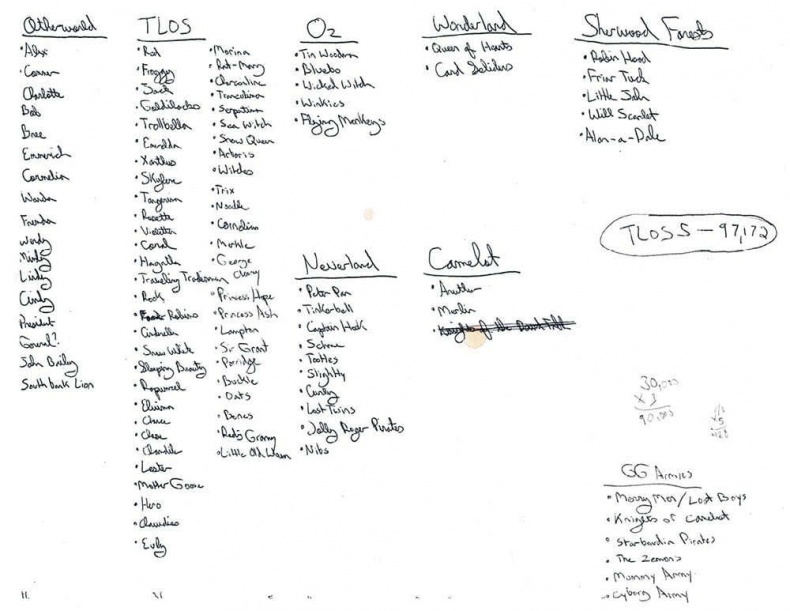 Otherworld
• Alex
• Conner
Charlotte
Bob
Bree
Emmerich
Cornelia
Wanda
Frenda
Wendy
Mindy
Lindy
Cindy
President
John Bailey
South bank Lion
TLOS
• Red
• Froggy
• Jack
• Goldilocks
• Trollbella
• Emerelda
• Xanthous
• Skylene
• Tangerina
• Rosette
• Violetta
• Coral
• Hagetta
• Traveling Tradesman
• Rook
• Robins
• Cinderella
• Snow White
• Sleeping Beauty
• Rapunzel
• Chance
• Chase
• Chandler
• Lester
• Mother Goose
• Hero
• Claudius
• Evly
• Morina
• Rat-Mary
• Charcoaline
• Tarantulina
• Serpentina
• Sea Witch
• Snow Queen
• Arboris
• Witches
• Trix
• Noodle
• Cornelius
• Merkle
• George
• Princess Hope
• Princess Ash
• Lampton
• Sir Grant
• Porridge
• Buckle
• Oats
• Bones
• Red's Granny
• Little Old Woman
Oz
• Tin Woodman
• Blubo
• Wicked Witch
• Winkies
• Flying Monkeys
Neverland
• Peter Pan
• Tinkerbell
• Captain Hook
• Tootles
• Slightly
• Curly
• Lost Twins
• Jolly Roger Pirates
• Nibs
Wonderland
• Queen of Hearts
• Card Soliders
Camelot
• Arthur
• Merlin
Sherwood Forests
• Robin Hood
• Friar Tuck
• Little John
• Will Scarlet
• Alan-a-Dale
TLOS 5 - 97,172
30,000
x 3
90,000
GG Armies
• Merry Men/Lost Boys
• Knights of Camelot
• Starboardia Pirates
• The Ziemons
• Mummy Army
• Cyborg Army